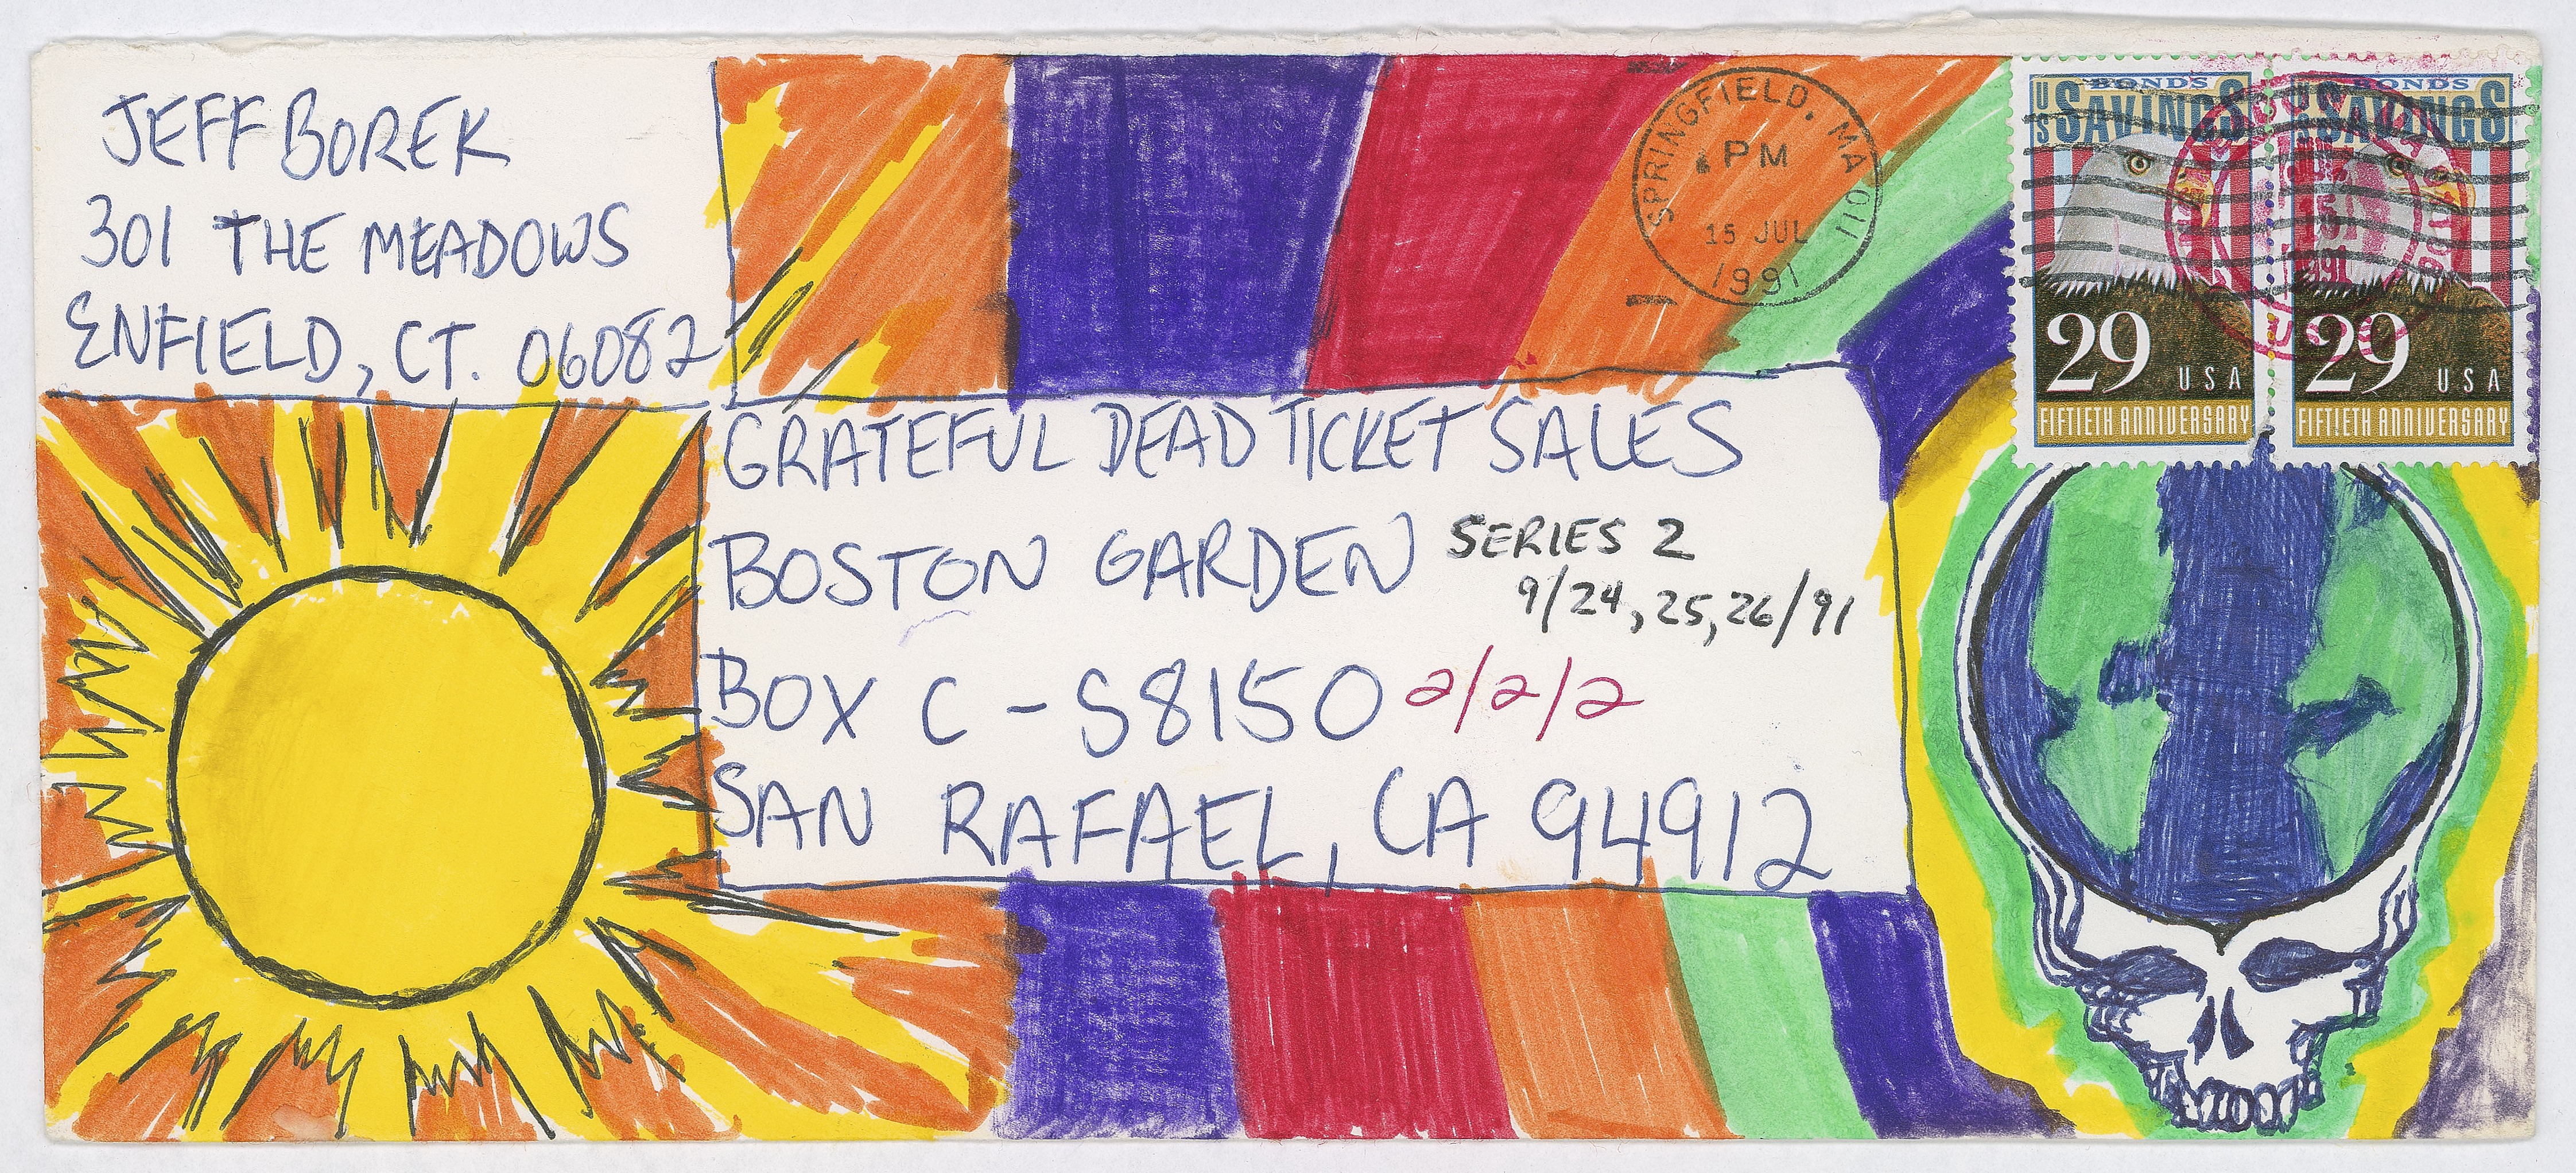 JEFF BOREK
301 THE MEADOWS
ENFIELD, CT. 06082
SPRINGFIELD, MA 011
PM
15 JUL
1991
US SAVINGS BONDS
29 USA
FIFTIETH ANNIVERSARY
US SAVINGS BONDS
29 USA
FIFTIETH ANNIVERSARY
GRATEFUL DEAD TICKET SALES
BOSTON GARDEN SERIES 2
9/24, 25, 26/91
BOX C - S8150 2/2/2
SAN RAFAEL, CA 94912